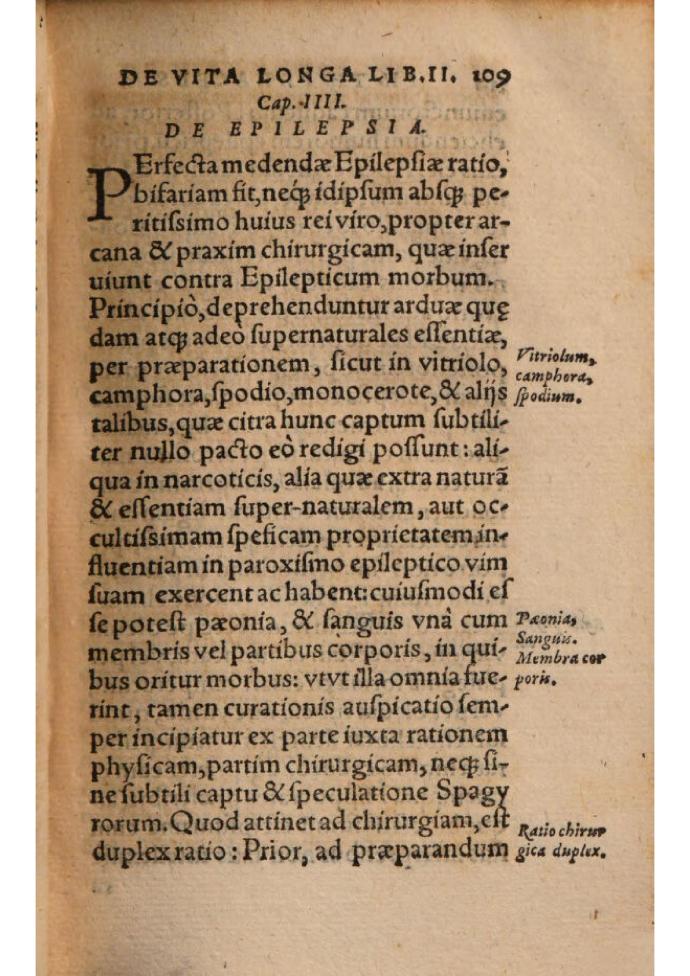 DE VITA LONGA LIB.II. 109
Cap. IIII.
DE EPILEPSIA.
PErfecta medendæ Epilepſiæ ratio,
bifariam fit, neq; idipſum abſq; pe-
ritiſsimo huius rei viro, propter ar-
cana & praxim chirurgicam, quæ inſer
uiunt contra Epilepticum morbum.
Principiò, deprehenduntur arduæ quę
dam atq; adeò ſupernaturales eſſentiæ,
per præparationem, ſicut in vitriolo,
Vitriolum,
camphora, ſpodio, monocerote, & alijs
camphora,
ſpodium.
talibus, quæ citra hunc captum ſubtili-
ter nullo pacto eò redigi poſſunt: ali-
qua in narcoticis, alia quæ extra naturã
& eſſentiam ſuper-naturalem, aut oc-
cultiſsimam ſpeficam proprietatem in-
fluentiam in paroxiſmo epileptico vim
ſuam exercent ac habent: cuiuſmodi eſ
ſe poteſt pæonia, & ſanguis vnà cum
Pæonia,
Sanguis.
membris vel partibus corporis, in qui-
Membra cor
bus oritur morbus: vtvt illa omnia fue-
poris.
rint, tamen curationis auſpicatio ſem-
per incipiatur ex parte iuxta rationem
phyſicam, partim chirurgicam, neq; ſi-
ne ſubtili captu & ſpeculatione Spagy
rorum. Quod attinet ad chirurgiam, eſt
Ratio chirur
duplex ratio: Prior, ad præparandum
gica duplex.